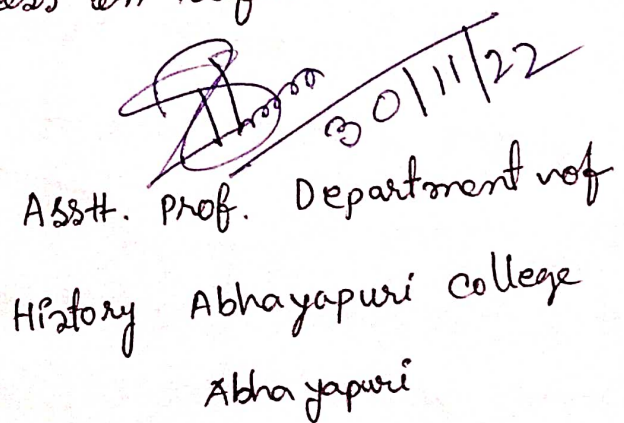 30/11/22
Asstt. Prof. Department of
History Abhayapuri college
Abhayapuri